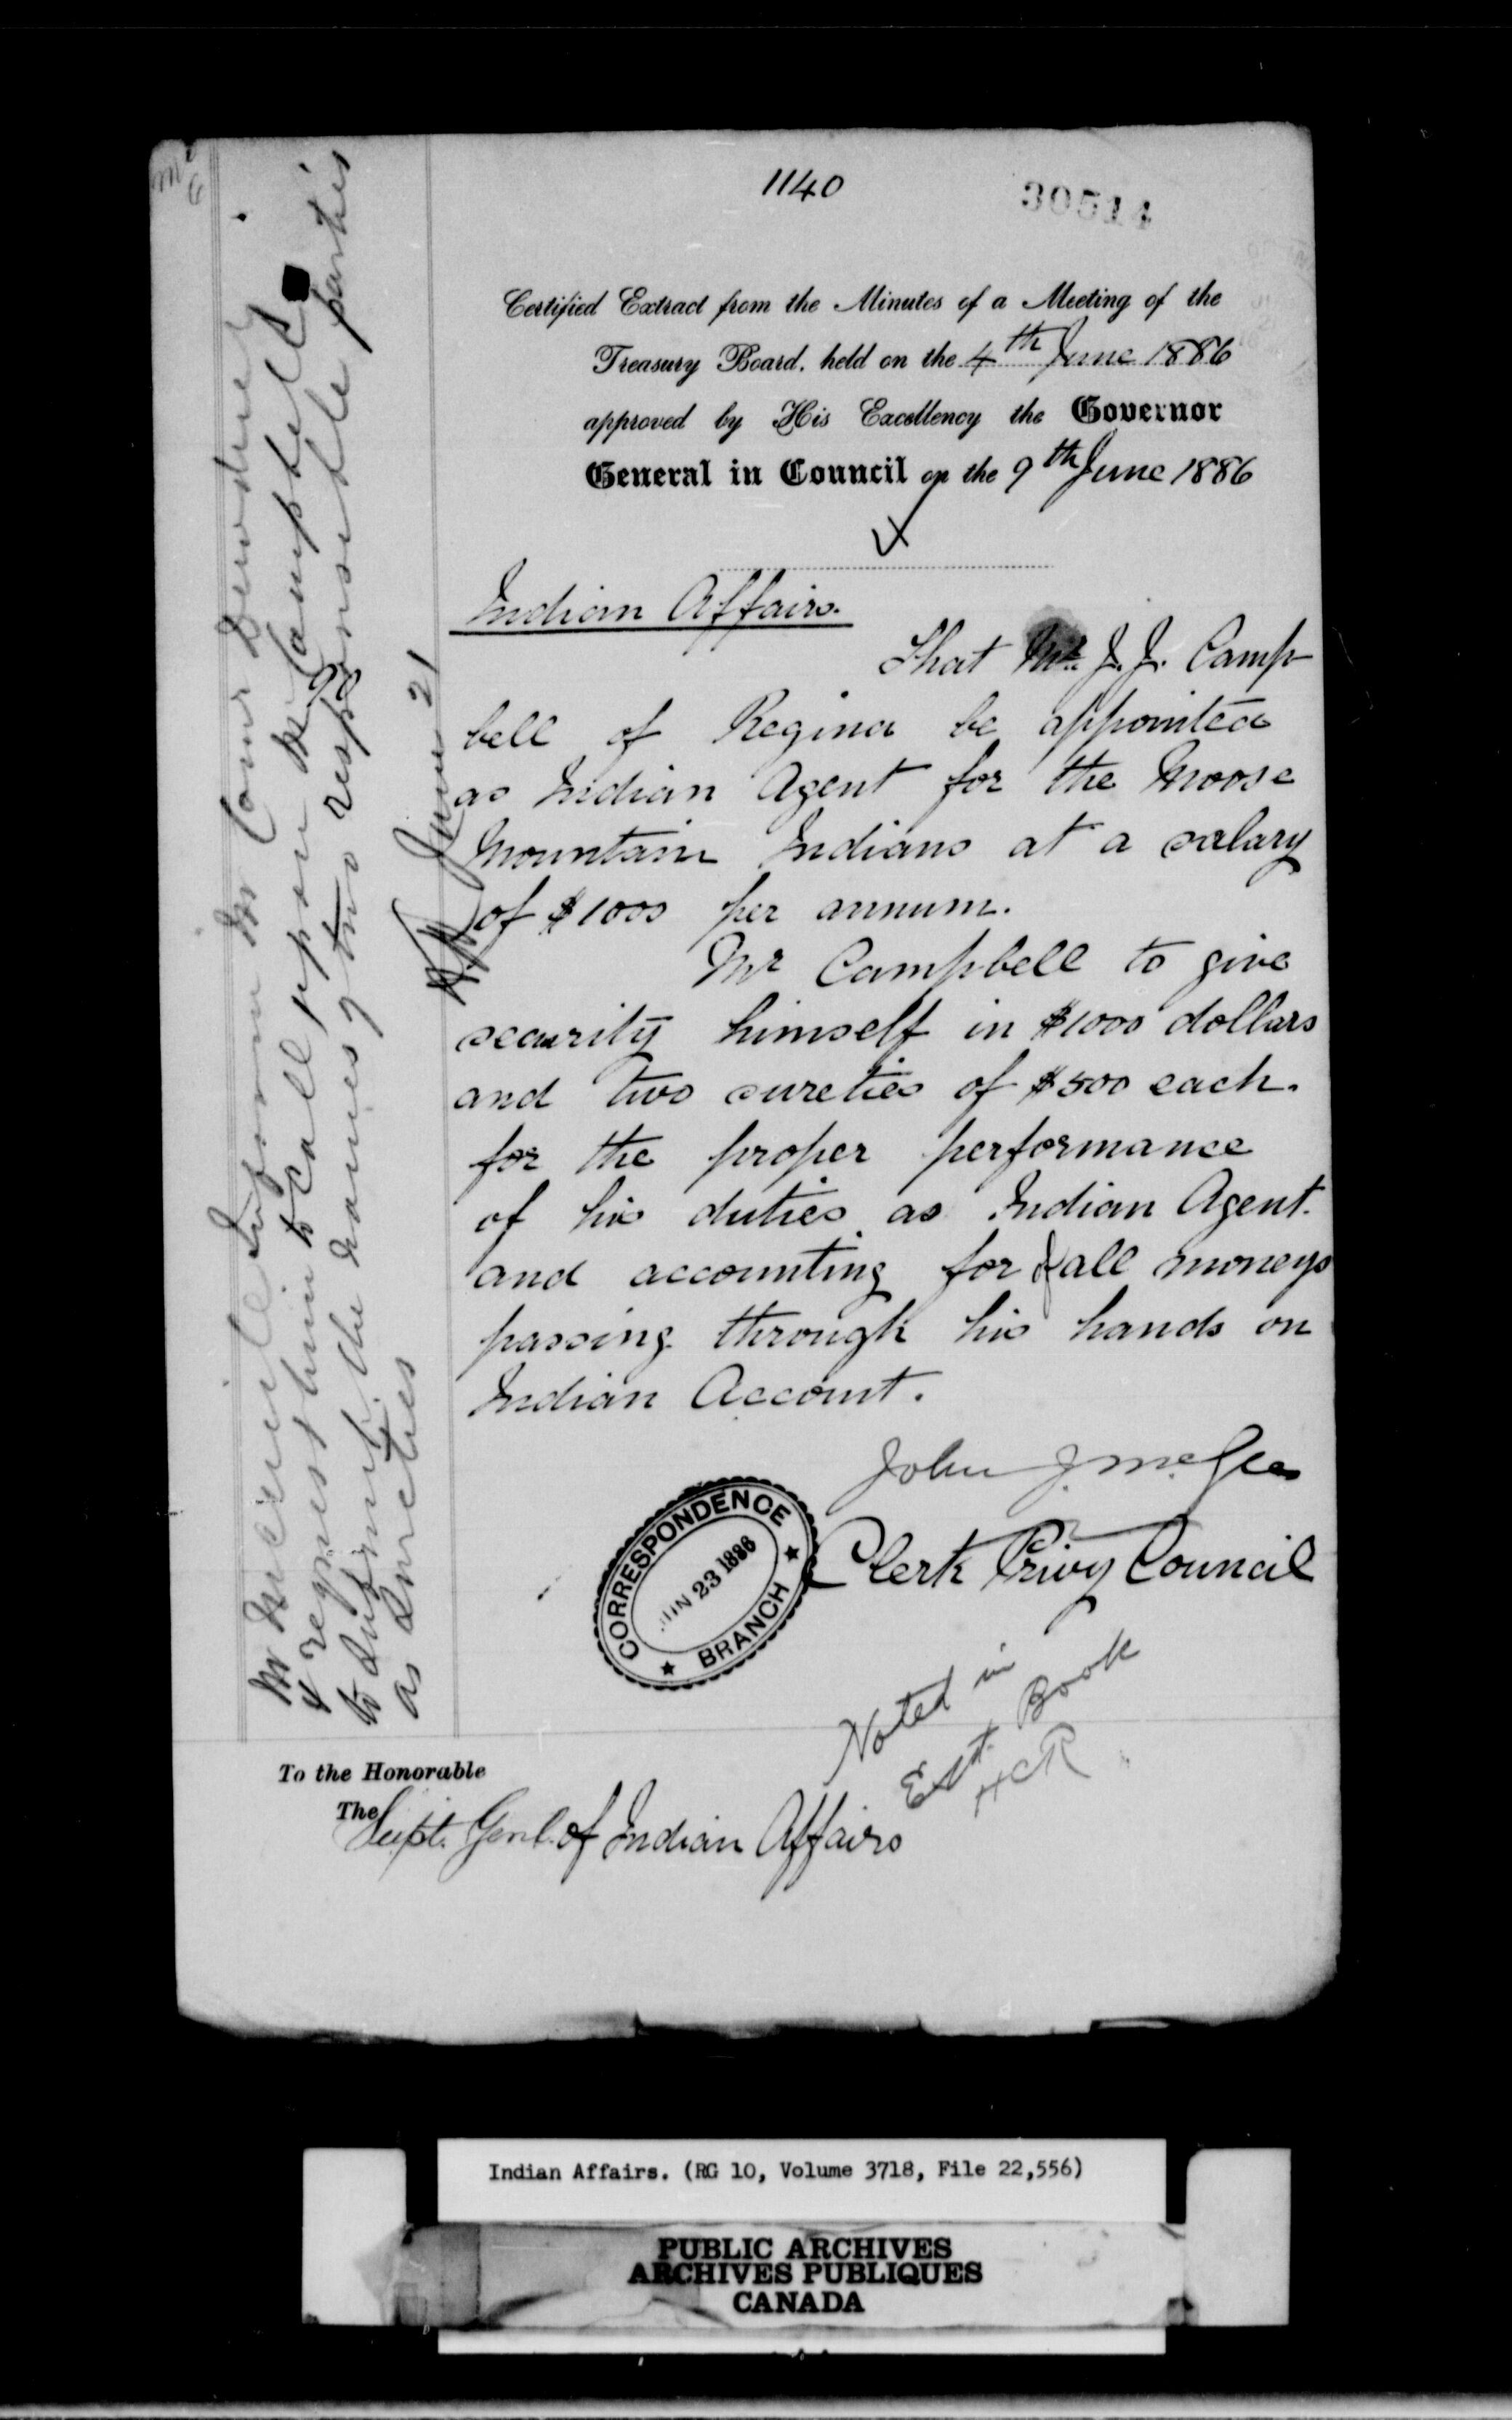 1140
30514
Certified Extract from the Minutes of a Meeting of the
Treasury Board, held on the 4th June 1886
approved by His Excellency the Governor
General in Council on the 9th June 1886
Indian Affairs.
That Mr. J. J. Camp
bell of Regina be appointed
as Indian Agent for the Moose
Mountain Indians at a salary
of $1000 per annum.
Mr Campbell to give
security himself in $1000 dollars
and two sureties of $500 each.
for the proper performance
of his duties as Indian Agent.
and accounting for all moneys
passing through his hands on
Indian Account.
John J. McGee
Clerk Privy Council
CORRESPONDENCE
JUN 23 1886
BRANCH
Noted in
Est. Book
HCR
To the Honorable
The Supt. Genl. of Indian Affairs
Mr McNeill Inform Mr Comr Dewdney
& request him to call upon Mr Campbell
to submit the names of two responsible parties
as sureties
June 21
Indian Affairs. (RG 10, Volume 3718, File 22,556)
PUBLIC ARCHIVES
ARCHIVES PUBLIQUES
CANADA